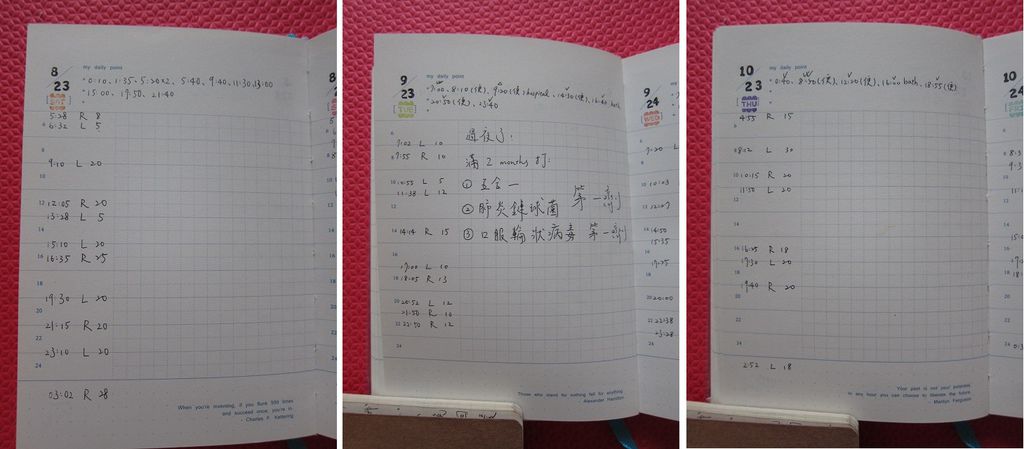 8/23
my daily point
SAT
0:10、1:35、5:20x2、5:40、9:40、11:30、13:00
15:00、17:50、21:40
5:28 R 8
6:32 L 5
9:10 L 20
12:05 R 20
13:28 L 5
15:10 L 20
16:35 R 25
19:30 L 20
21:15 R 20
23:10 L 20
03:02 R 28
When you're inventing, if you flunk 999 times
and succeed once, you're in.
- Charles F. Kettering
9/23
my daily point
TUE
7:00、8:10(便)、9:20(便)hospital、14:30(便)、16:40 bath、
20:50(便)、23:40
過夜了:
7:02 L 10
7:55 R 10
滿 2 months 打:
10:55 L 5
11:38 L 12
① 五合一
② 肺炎鏈球菌 第一劑
③ 口服輪狀病毒 第一劑
14:14 R 15
17:00 L 10
18:05 R 13
20:52 L 12
21:50 R 10
22:50 R 12
Those who stand for nothing fall for anything.
- Alexander Hamilton
9/24
WED
7:20 L
10:03
12:07
14:50
15:35
17:25
20:00
22:38
23:28
10/23
my daily point
THU
0:40、8:30(便)、12:20(便)、16:20 bath、18:55(便)
4:55 R 15
8:12 L 30
10:15 R 20
11:50 L 20
16:25 R 18
17:30 L 20
19:40 R 20
2:52 L 18
Your past is not your potential.
In any hour you can choose to liberate the future.
- Marilyn Ferguson
10